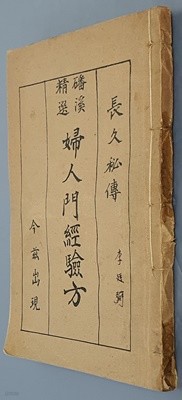 長久祕傳
李廷馣
磻溪精選
婦人門經驗方
今茲出現